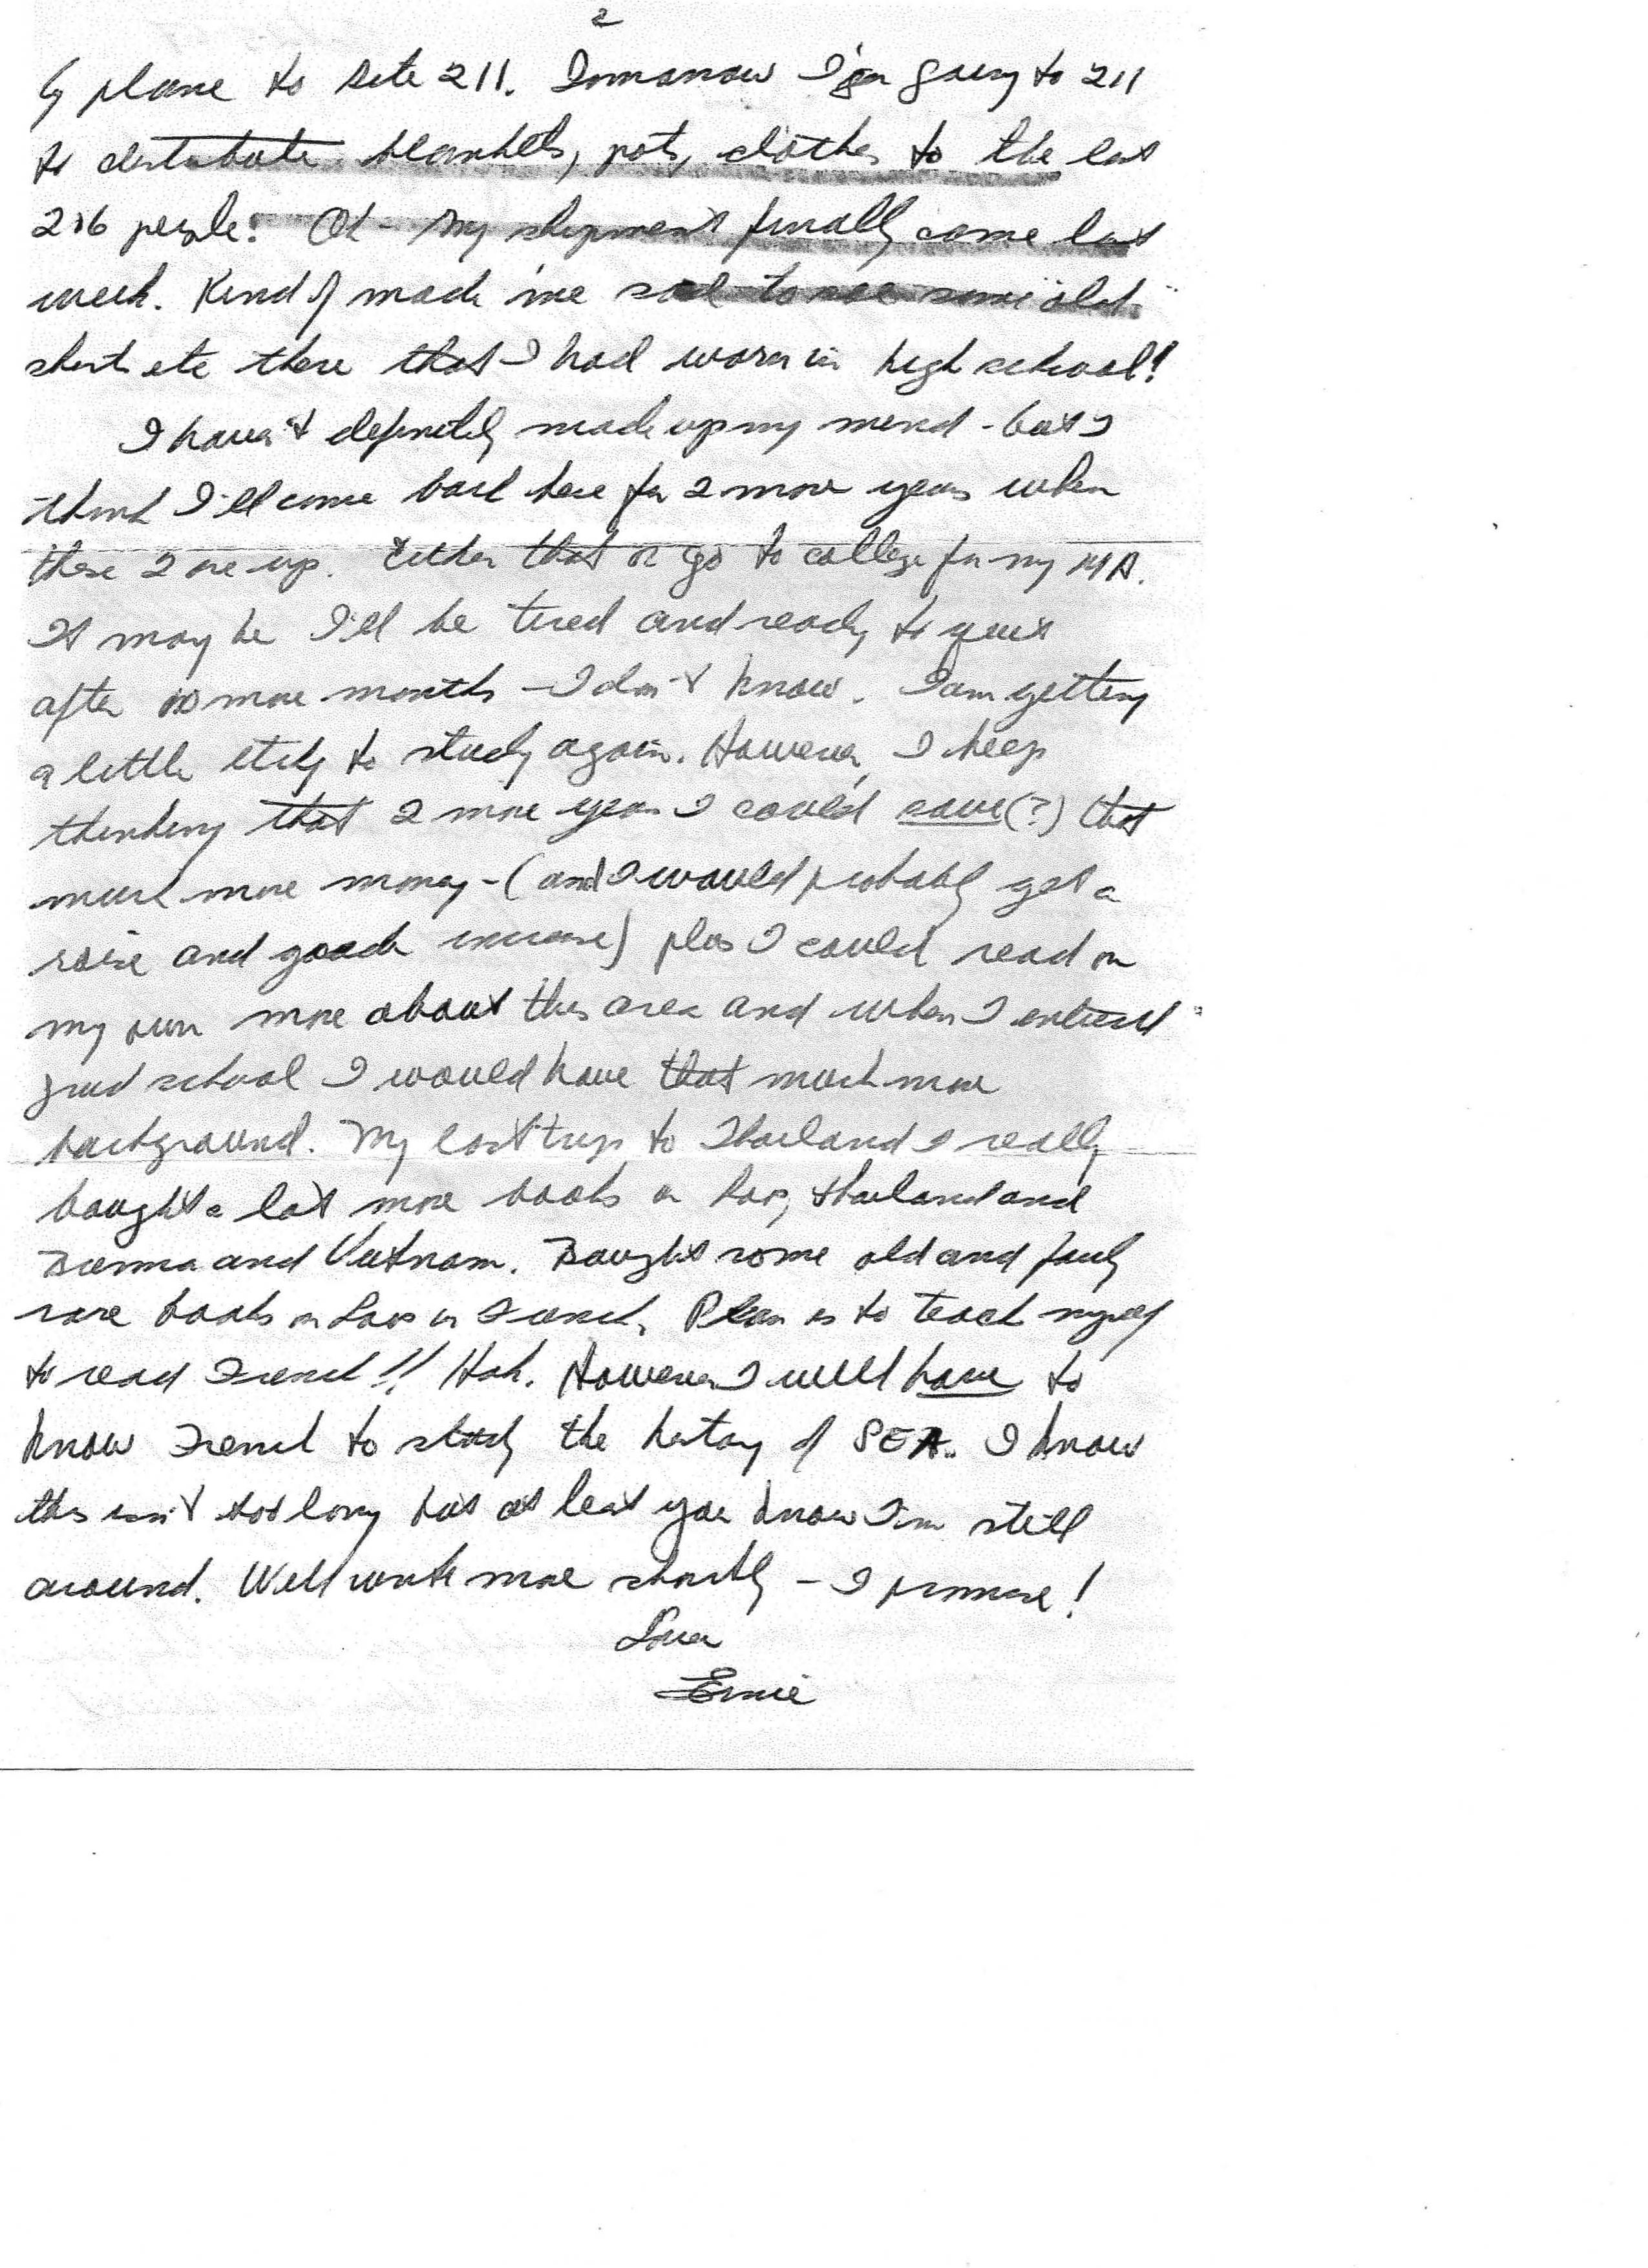 2
by plane to site 211. Tomorrow I'm going to 211
to distribute blankets, pots, clothes to the last
216 people. Oh - my shipment finally came last
week. Kind of made me sad to see some old
shirts etc there that I had worn in high school!
I haven't definitely made up my mind - but I
think I'll come back here for 2 more years when
these 2 are up. Either that or go to college for my MA.
It may be I'll be tired and ready to quit
after 10 more months - I don't know. I am getting
a little itchy to study again. However, I keep
thinking that 2 more years I could save (?) that
much more money - (and I would probably get a
raise and grade increase) plus I could read on
my own more about this area and when I entered
grad school I would have that much more
background. My last trip to Thailand I really
bought a lot more books on Laos, Thailand and
Burma and Vietnam. Bought some old and fairly
rare books on Laos in French. Plan is to teach myself
to read French!! Hah. However I will have to
know French to study the history of SEA. I know
this isn't too long but at least you know I'm still
around. Will write more shortly - I promise!
Love
Ernie